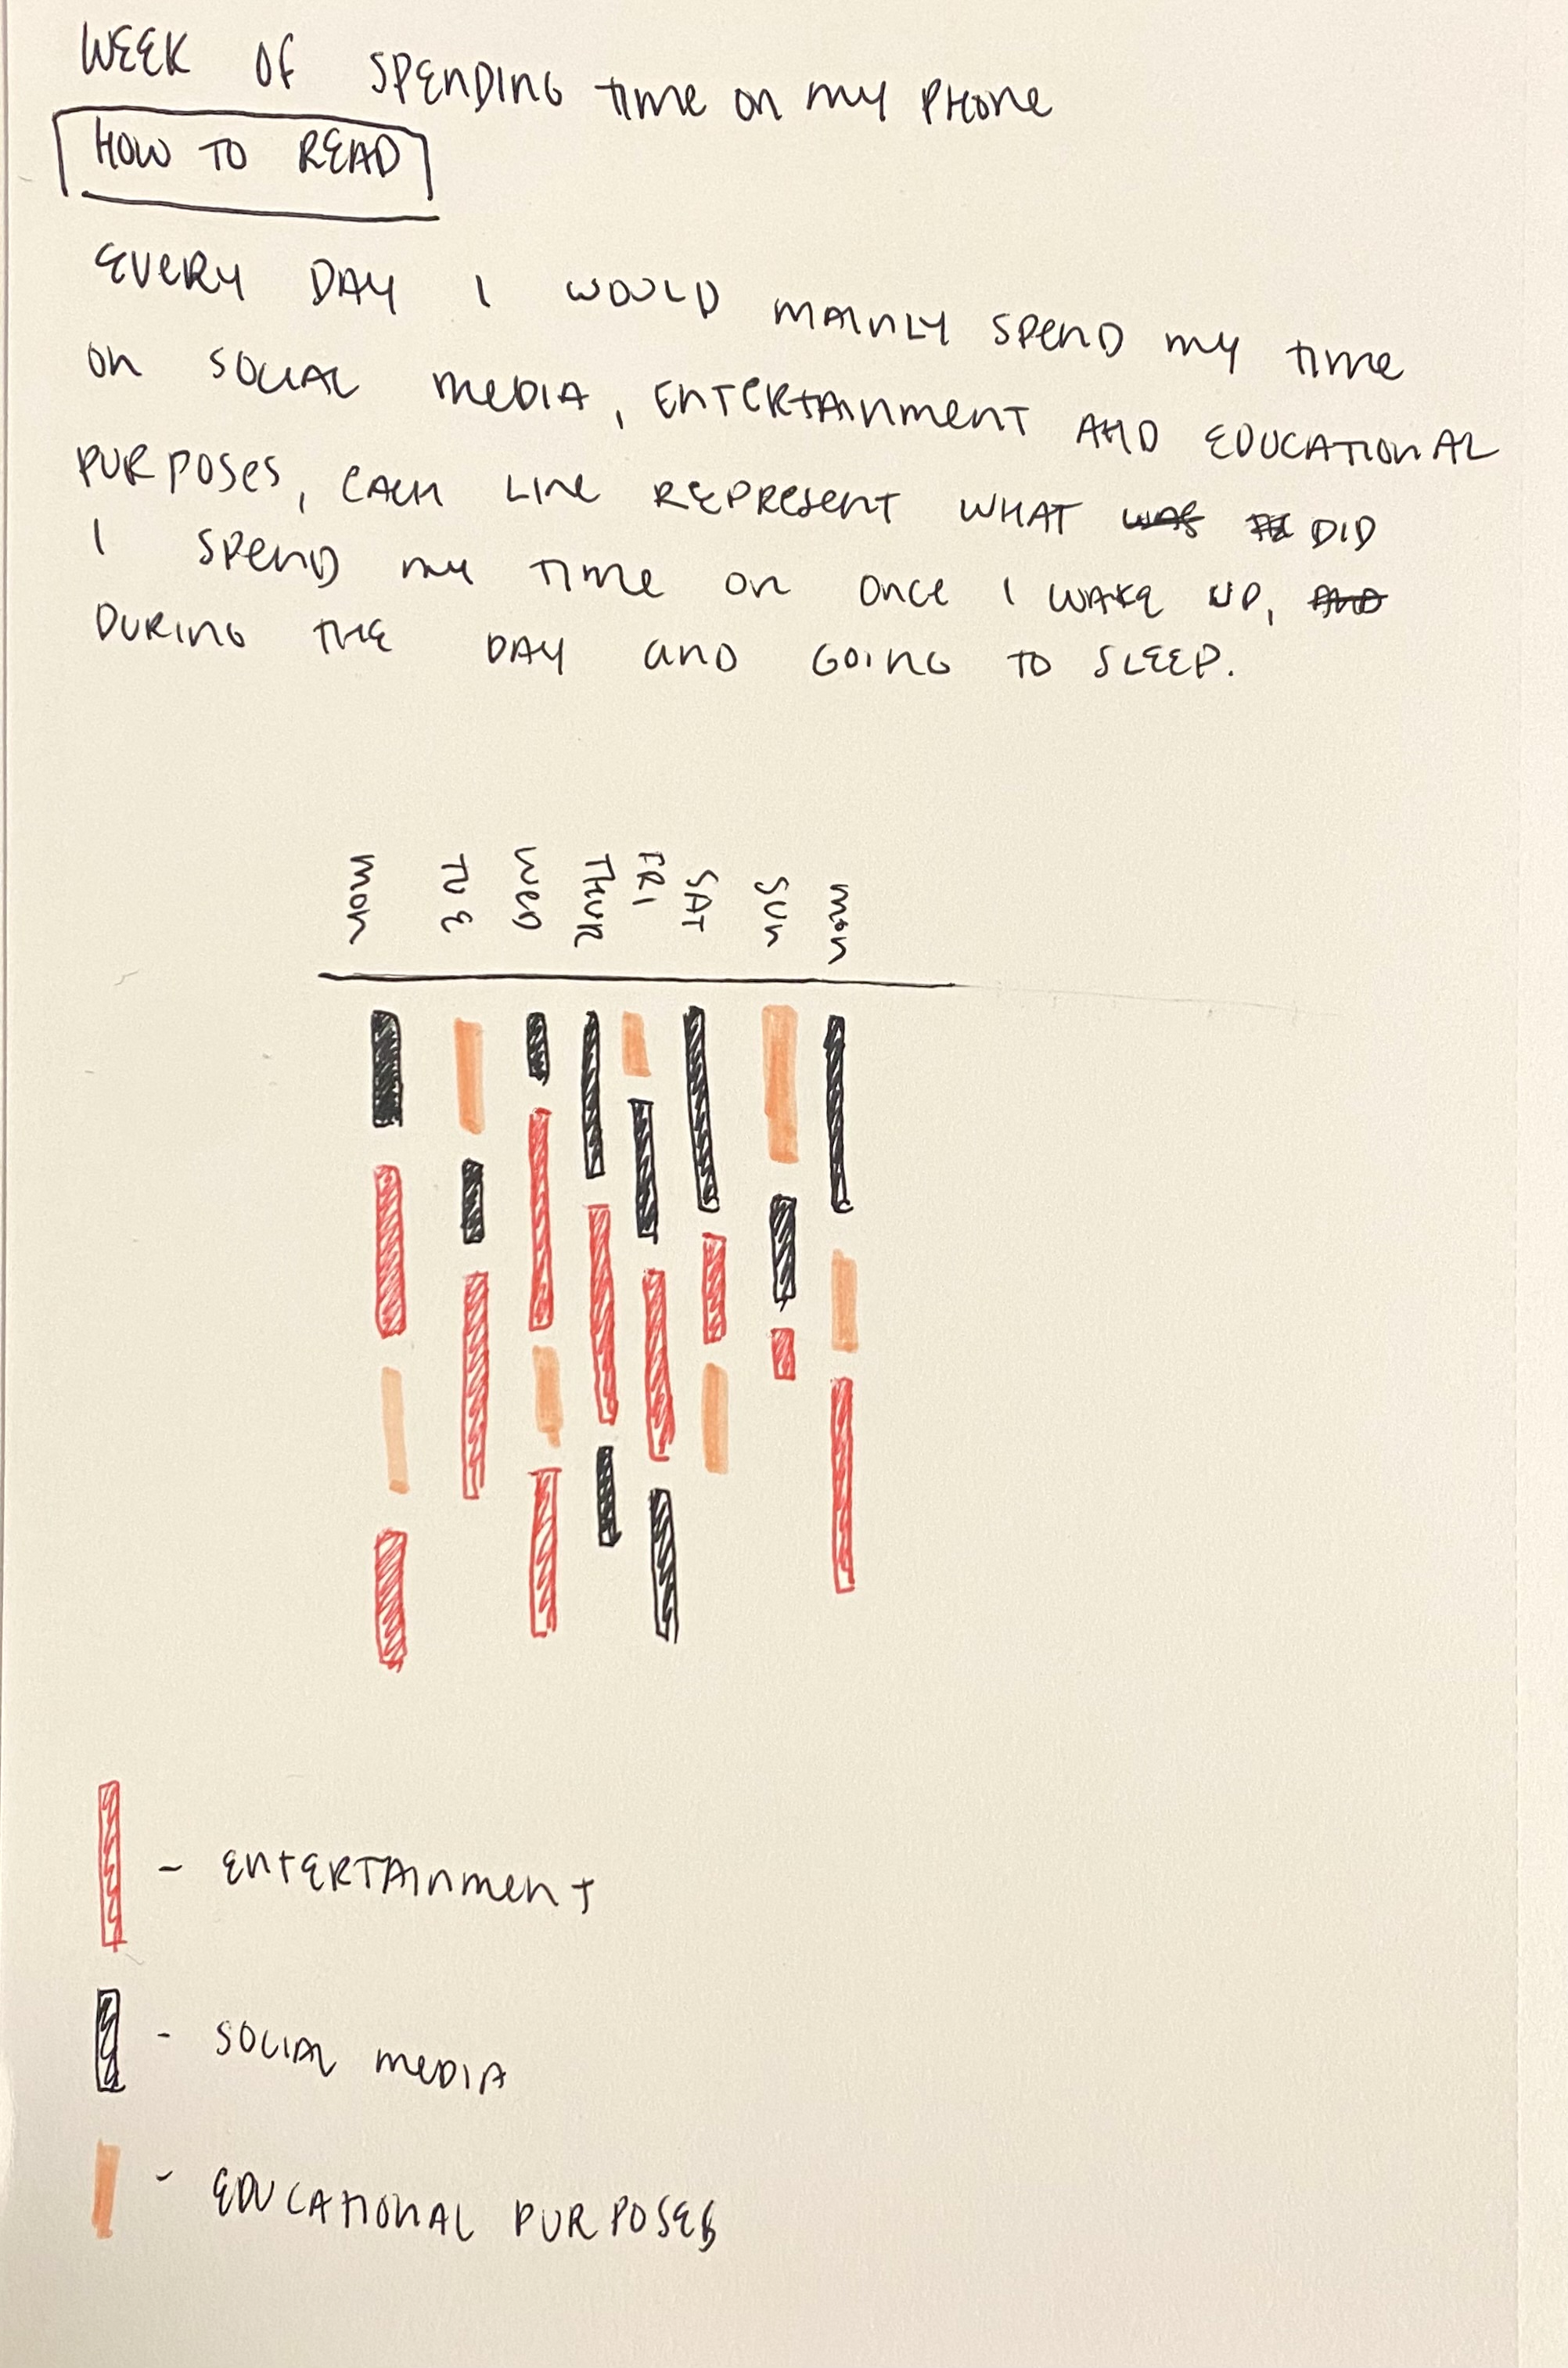 WEEK OF SPENDING TIME ON MY PHONE
HOW TO READ
EVERY DAY I WOULD MAINLY SPEND MY TIME
ON SOCIAL MEDIA, ENTERTAINMENT AND EDUCATIONAL
PURPOSES, EACH LINE REPRESENT WHAT WAS DID
I SPEND MY TIME ON ONCE I WAKE UP, AND
DURING THE DAY AND GOING TO SLEEP.
MON TUE WED THUR FRI SAT SUN MON
- ENTERTAINMENT
- SOCIAL MEDIA
- EDUCATIONAL PURPOSES